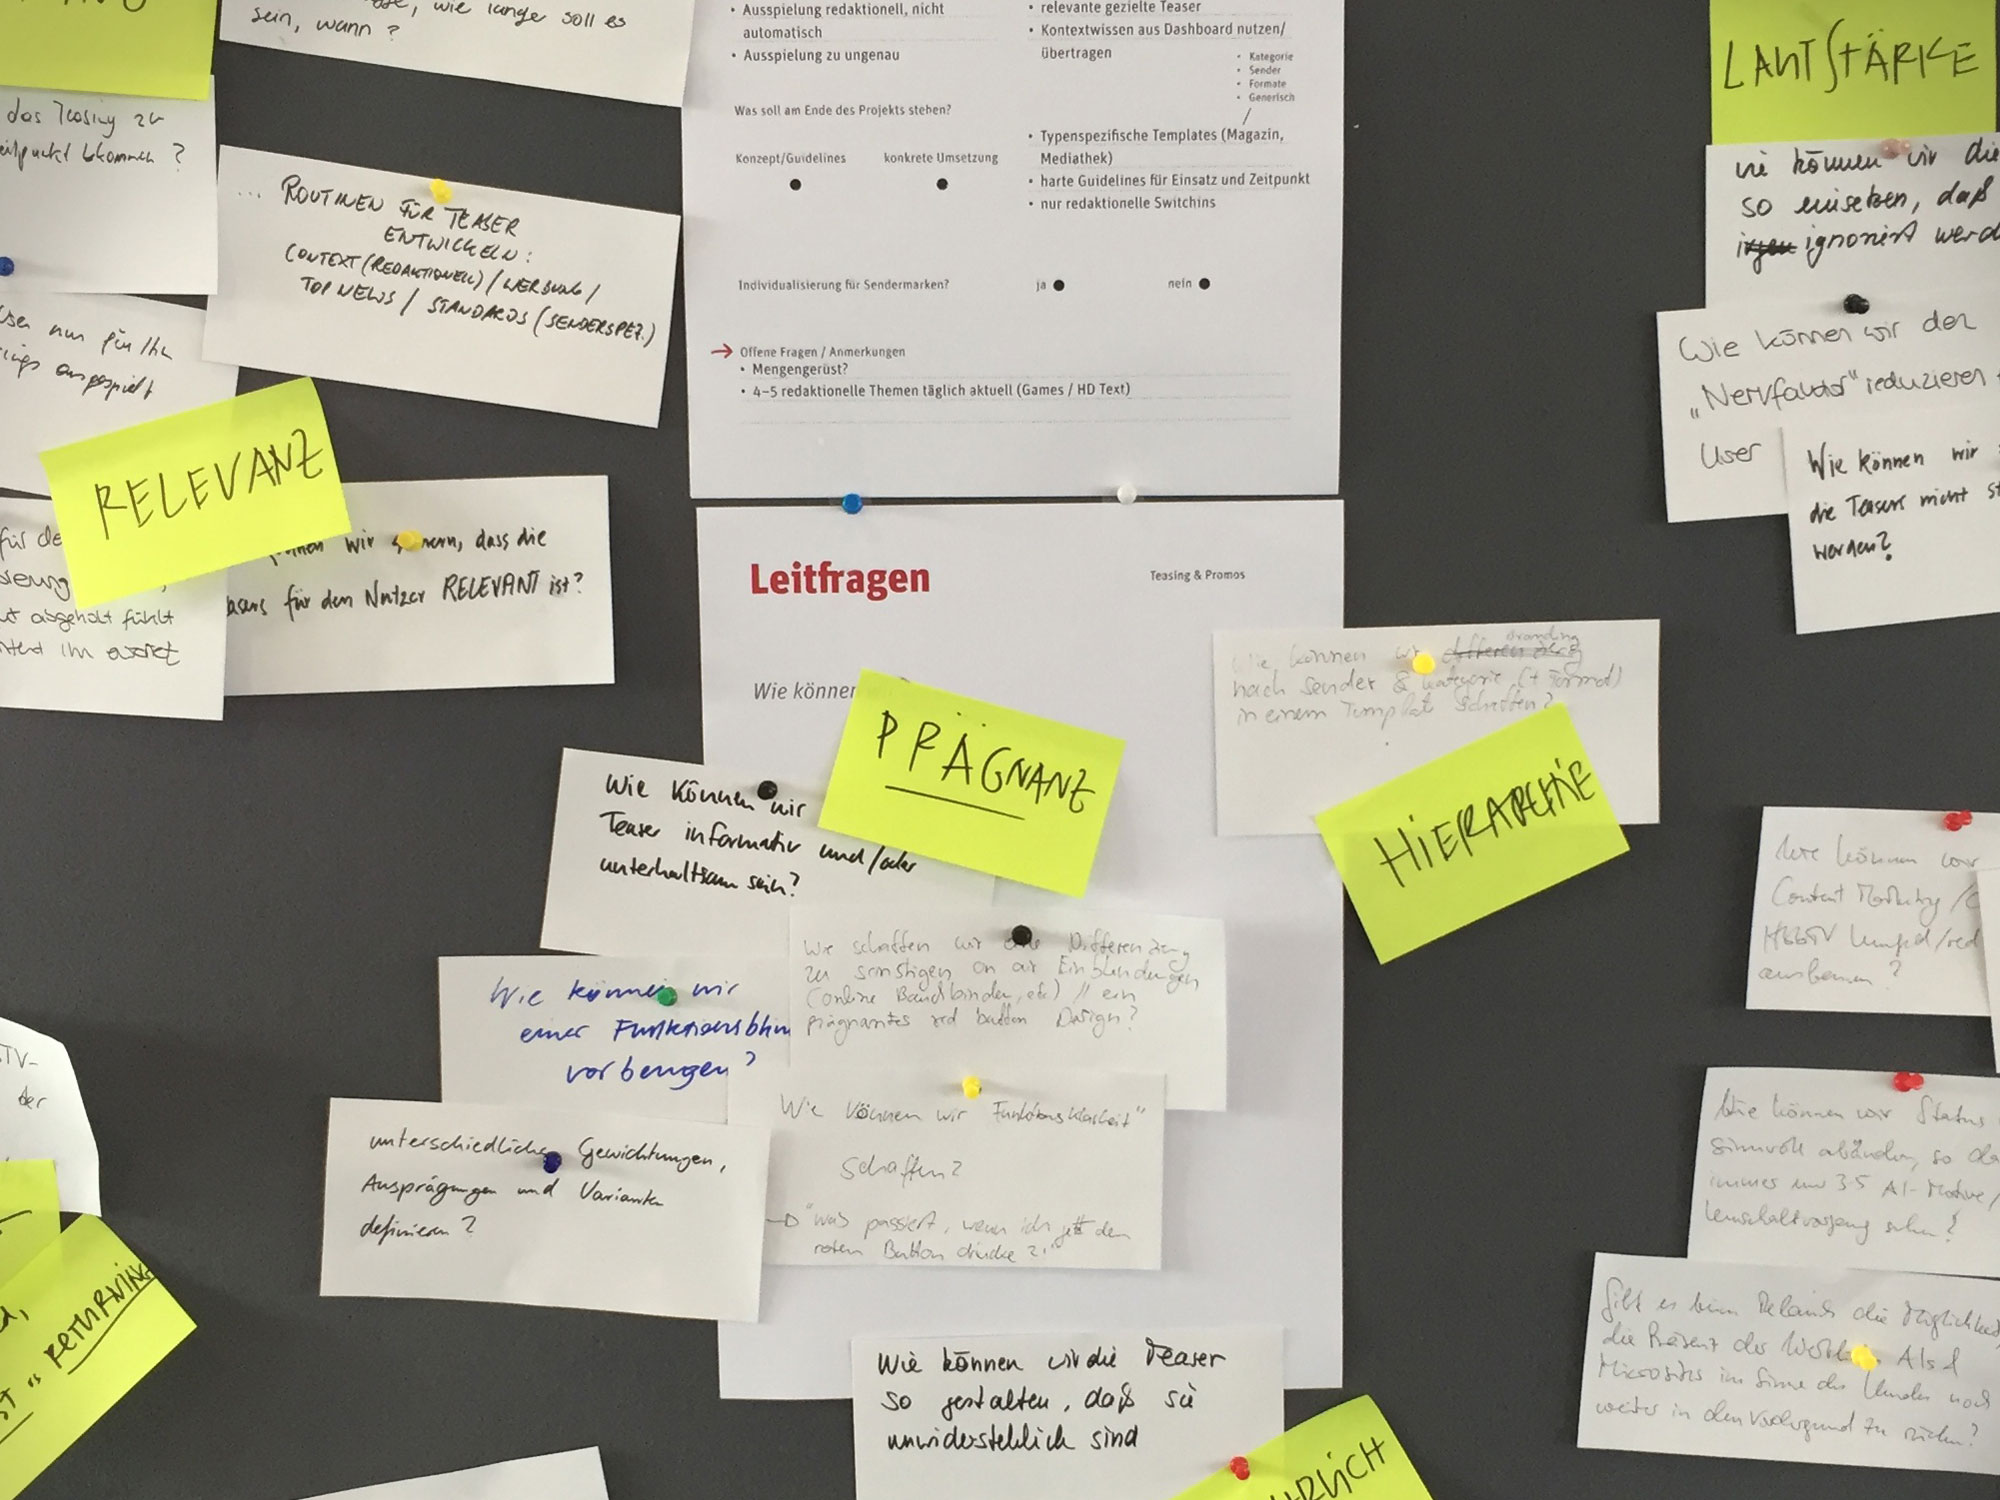 wie lange soll es
sein, wann?
das Teasing zu
bekommen?
... ROUTINEN FÜR TEASER
ENTWICKELN:
CONTEXT (REDAKTIONELL) / WERBUNG /
TOP NEWS / STANDARDS (SENDERSPEZ.)
nun für Ihn
ausgespielt
RELEVANZ
wir dass die
für den Nutzer RELEVANT ist?
für
abgeholt fühlt
ihm
TV-
der
RETURNING
• Ausspielung redaktionell, nicht
automatisch
• Ausspielung zu ungenau
• relevante gezielte Teaser
• Kontextwissen aus Dashboard nutzen/
übertragen
• Kategorie
• Sender
• Formate
• Generisch
/
Was soll am Ende des Projekts stehen?
Konzept/Guidelines konkrete Umsetzung
• Typenspezifische Templates (Magazin,
Mediathek)
• harte Guidelines für Einsatz und Zeitpunkt
• nur redaktionelle Switchins
Individualisierung für Sendermarken? ja nein
→ Offene Fragen / Anmerkungen
• Mengengerüst?
• 4–5 redaktionelle Themen täglich aktuell (Games / HD Text)
Leitfragen
Teasing & Promos
Wie können
PRÄGNANZ
Wie können wir
Teaser informativ und/oder
unterhaltsam sein?
Wie können wir
einer
vorbeugen?
Wie schaffen wir eine Differenzierung
zu sonstigen on air Einblendungen
(online Bauchbinden, etc) // ein
prägnantes red button Design?
Wie können wir "Funktionsklarheit"
schaffen?
→ "was passiert, wenn ich jetzt den
roten Button drücke?!"
unterschiedliche Gewichtungen,
Ausprägungen und Varianten
definieren?
Wie können wir die Teaser
so gestalten, daß sie
unwiderstehlich sind
branding
Wie können wir
nach Sender & Kategorie (+ Format)
in einem Template schaffen?
HIERARCHIE
LAUTSTÄRKE
wie können wir die
so einsetzen, daß
ignoriert
Wie können wir den
„Nervfaktor" reduzieren
User
Wie können wir
die Teasers nicht
werden?
Wie können wir
Content Marketing /
HbbTV
ausbauen?
Wie können wir Status
sinnvoll abändern, so
immer nur 3-5
Umschaltvorgang sehen?
Gibt es beim Relaunch die
die Präsenz der
Microsites im Sinne des Kunden noch
weiter in den Vordergrund zu rücken?